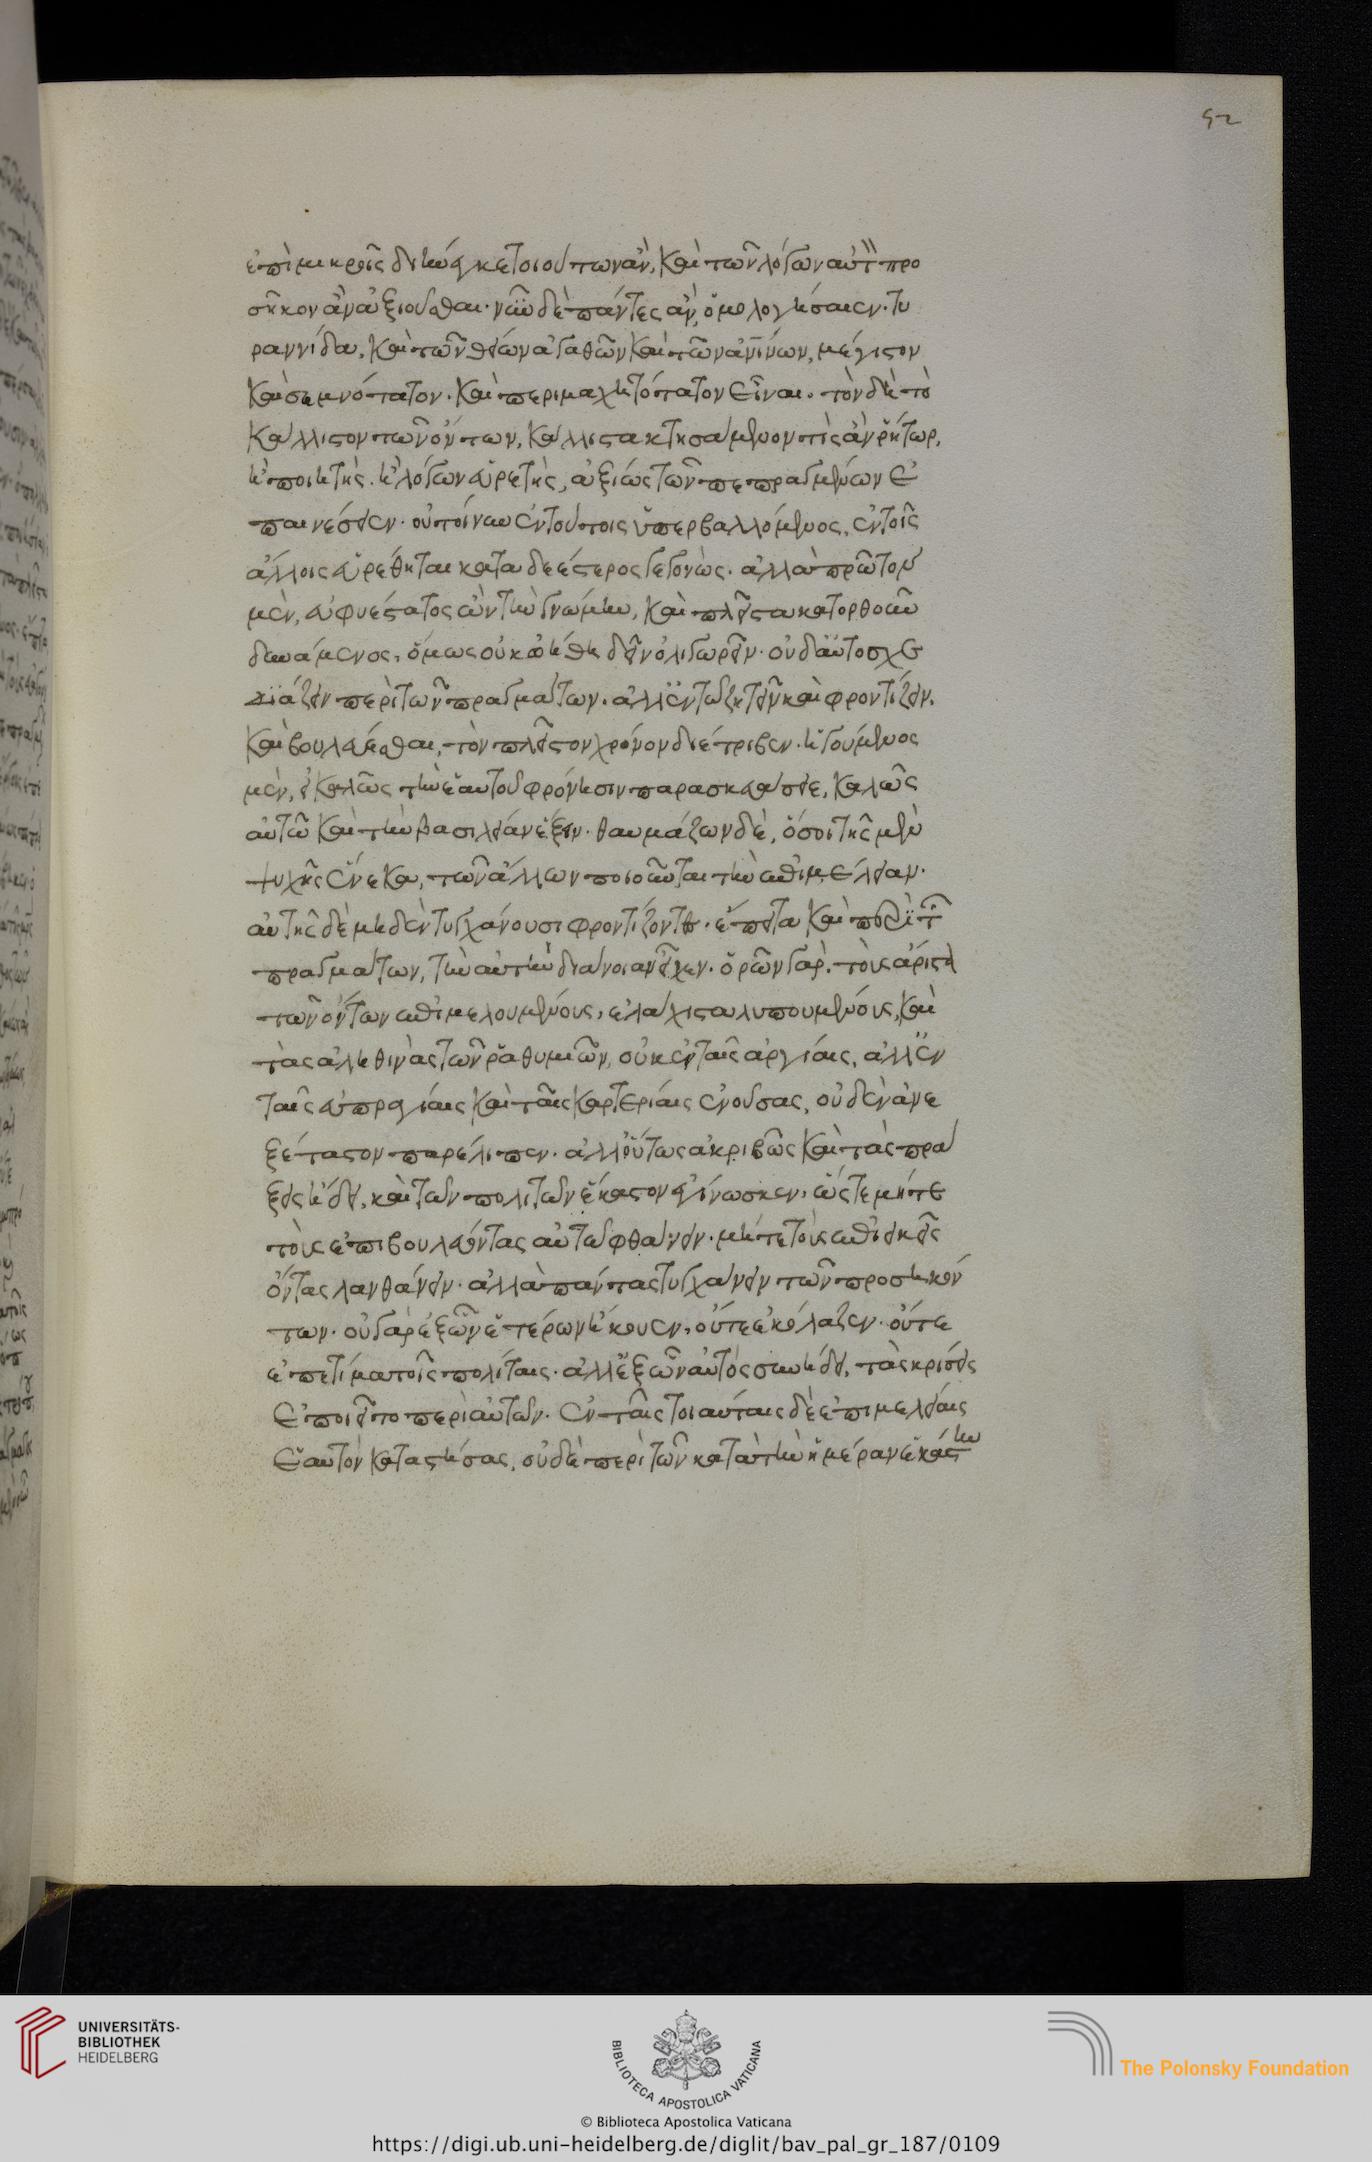 ἐπὶ μικροῖς διήνεγκε τοιούτων ἂν, καὶ τῶν λόγων αὐτ προ
σῆκον ἂν ἀξιοῦσθαι· νῦν δὲ πάντες ἂν, ὁμολογήσαιεν· τυ
ραννίδα, καὶ τῶν θείων ἀγαθῶν καὶ τῶν ἀνίνων, μέγιστον
καὶ σεμνότατον· καὶ περιμαχητότατον εἶναι· τὸν δὴ τὸ
κάλλιστον τῶν ὄντων, κάλλιστα κτησάμενον τίς ἂν ῥήτωρ,
ἢ ποιητής· ἢ λόγων εὑρετής, ἀξίως τῶν πεπραγμένων ἐ
παινέσειεν· οὐ τοίνυν ἐν τούτοις ὑπερβαλλόμενος, ἐν τοῖς
ἄλλοις εὑρέθηται καταδεέστερος γεγονώς· ἀλλὰ πρῶτον
μὲν, εὐφυέστατος ὢν τὴν γνώμην, καὶ πλεῖστα κατορθοῦν
δυνάμενος, ὅμως οὐκ ᾠήθη δεῖν ὀλιγωρεῖν· οὐδ' αὐτοσχε
διάζειν περὶ τῶν πραγμάτων· ἀλλ' ἐν τῶ ζητεῖν καὶ φροντίζειν,
καὶ βουλεύεσθαι, τὸν πλεῖστον χρόνον διέτριβεν· ἡγούμενος
μὲν, εἰ καλῶς τὴν ἑαυτοῦ φρόνησιν παρασκευάσειε, καλῶς
αὐτῶ καὶ τὴν βασιλείαν ἕξειν· θαυμάζων δὲ, ὅσοι τῆς μὲν
ψυχῆς ἕνεκα, τῶν ἄλλων ποιοῦνται τὴν ἐπιμέλειαν·
αὐτῆς δὲ μηδὲν τυγχάνουσι φροντίζοντες· ἔπειτα καὶ περὶ τ
πραγμάτων, τὴν αὐτὴν διάνοιαν εἶχεν· ὁρῶν γὰρ, τοὺς ἄριστα
τῶν ὄντων ἐπιμελουμένους, ἐλάχιστα λυπουμένους, καὶ
τὰς ἀληθινὰς τῶν ῥαθυμιῶν, οὐκ ἐν ταῖς ἀργίαις, ἀλλ' ἐν
ταῖς εὐπραγίαις καὶ ταῖς καρτερίαις ἐνούσας, οὐδὲν ἀνε
ξέταστον παρέλιπεν· ἀλλ' οὕτως ἀκριβῶς καὶ τὰς πρά
ξεις ἤδει, καὶ τῶν πολιτῶν ἕκαστον ἐγίνωσκεν, ὥστε μήτε
τοὺς ἐπιβουλεύοντας αὐτῶ φθάνειν· μήτε τοὺς ἐπιεικεῖς
ὄντας λανθάνειν· ἀλλὰ πάντας τυγχάνειν τῶν προσηκόν
των· οὐ γὰρ ἐξ ὧν ἑτέρων ἤκουεν, οὔτε ἐκόλαζεν· οὔτε
ἐπετίμα τοῖς πολίταις· ἀλλ' ἐξ ὧν αὐτὸς συνήδει, τὰς κρίσεις
ἐποιεῖτο περὶ αὐτῶν· ἐν ταῖς τοιαύταις δὲ ἐπιμελείαις
ἑαυτὸν καταστήσας, οὐδὲ περὶ τῶν κατὰ τὴν ἡμέραν ἑκάστην
UNIVERSITÄTS-
BIBLIOTHEK
HEIDELBERG
BIBLIOTECA APOSTOLICA VATICANA
The Polonsky Foundation
© Biblioteca Apostolica Vaticana
https://digi.ub.uni-heidelberg.de/diglit/bav_pal_gr_187/0109